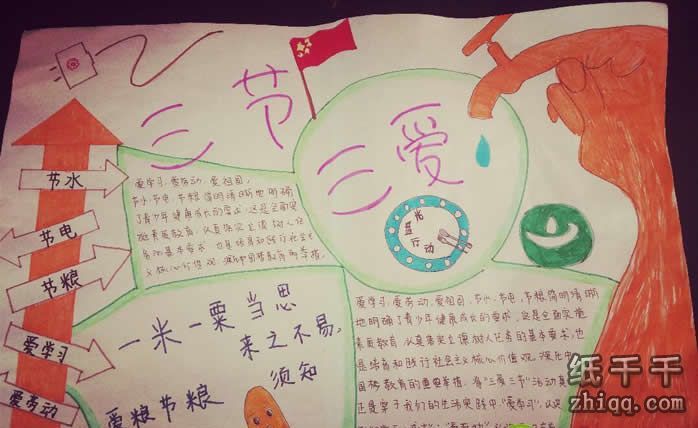 三节
三爱
节水
节电
节粮
爱学习
爱劳动
光盘行动
爱学习、爱劳动、爱祖国,
节水、节电、节粮简明清晰地明确
了青少年健康成长的要求,这是全面实
施素质教育,认真落实立德树人任
务的基本要求,也是培育和践行社会主
义核心价值观
一米一粟当思
来之不易,
爱粮节粮 须知
爱学习、爱劳动、爱祖国、节水、节电、节粮简明清晰
地明确了青少年健康成长的要求,这是全面实施
素质教育、认真落实立德树人任务的基本要求,也
是培育和践行社会主义核心价值观、
国梦教育的重要举措。将“三爱三节”活动
还是要于我们的生活实践中。“爱学习”,
纸千千
zhiqq.com